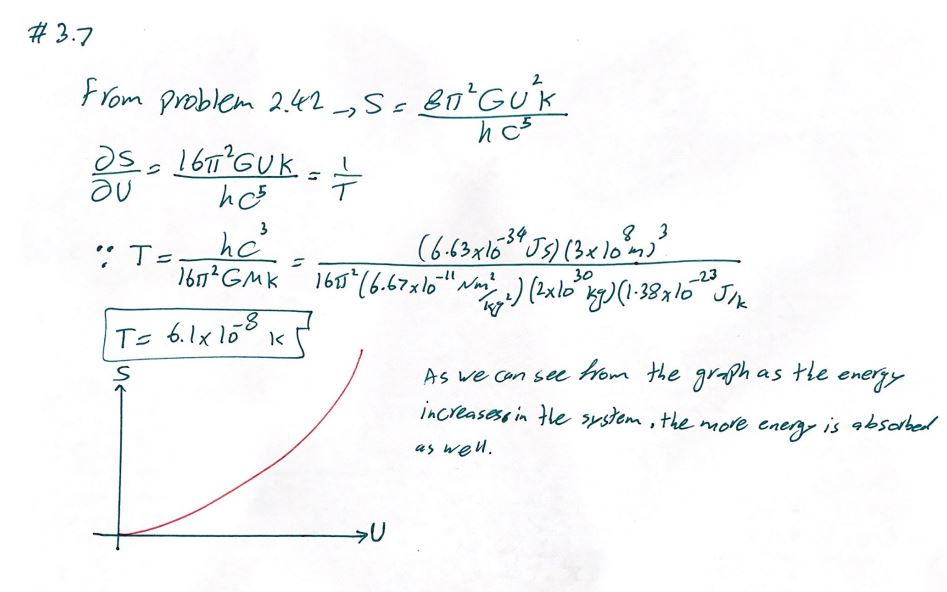 # 3.7
From problem 2.42 → S = 8π²GU²k / hc⁵
∂S/∂U = 16π²GUk / hc⁵ = 1/T
∵ T = hc³ / 16π²GMk = (6.63x10⁻³⁴ Js)(3x10⁸ m)³ / 16π²(6.67x10⁻¹¹ Nm²/kg²)(2x10³⁰ kg)(1.38x10⁻²³ J/k
T = 6.1x10⁻⁸ k
S
As we can see from the graph as the energy
increases in the system, the more energy is absorbed
as well.
U